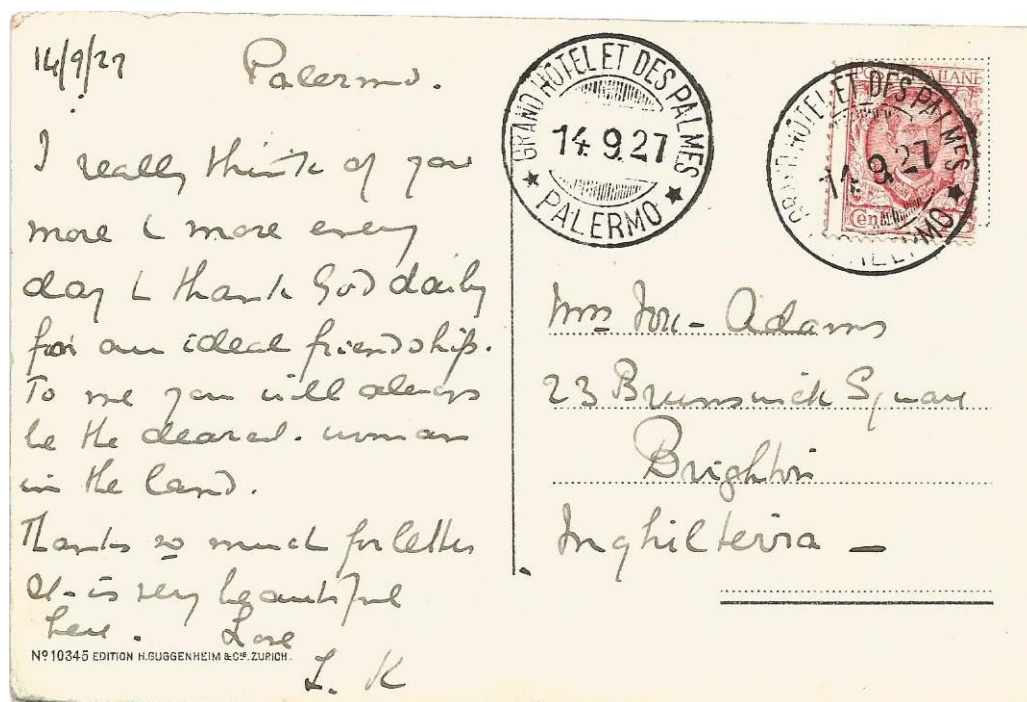 14/9/27 Palermo.
I really think of you
more & more every
day & thank God daily
for our ideal friendship.
To me you will always
be the dearest woman
in the land.
Thanks so much for letter
It is very beautiful
here. Love
L. K
Nº 10345 EDITION H. GUGGENHEIM & Cⁱᵉ. ZURICH.
GRAND HOTEL ET DES PALMES
14.9.27
PALERMO
GRAND HOTEL ET DES PALMES
14.9.27
PALERMO
Mrs Adams
23 Brunswick Square
Brighton
Inghilterra